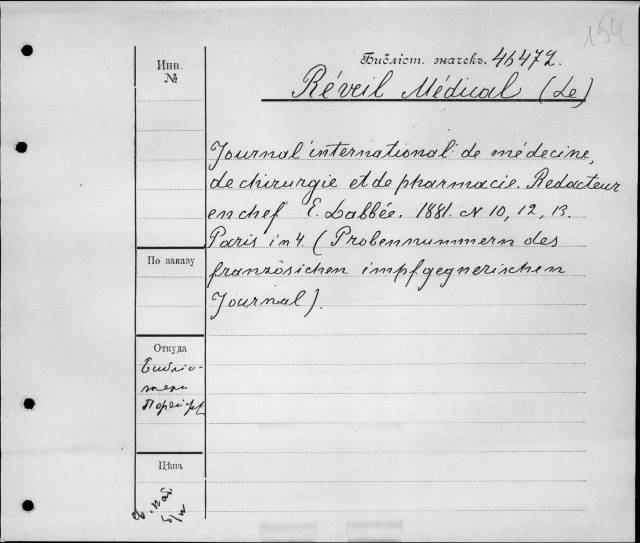 154
Библіот. значекъ. 46472.
Инв. №
Réveil Médical (Le)
Journal international de médecine,
de chirurgie et de pharmacie. Redacteur
en chef E. Dabbée. 1881. N 10, 12, 13.
Paris in 4 (Probennummern des
französichen impfgegnerischen
Journal).
По заказу
Откуда
Библіо-
тека
Цѣна